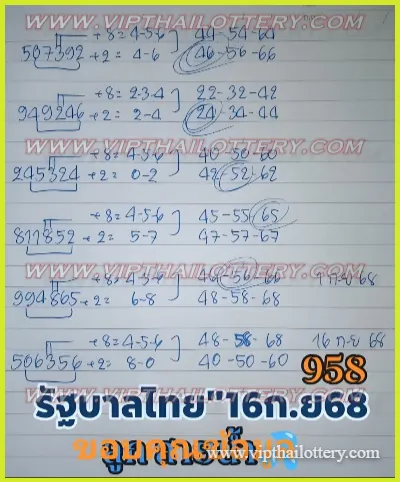 WWW.VIPTHAILOTTERY.COM
+8= 4-5-6 44-54-64
507392 +2= 4-6 46-56-66
WWW.VIPTHAILOTTERY.COM
+8= 2-3-4 22-32-42
949246 +2= 2-4 24-34-44
WWW.VIPTHAILOTTERY.COM
40-50-60
245324 +2= 0-2 42-52-62
+8= 4-5-6 45-55-65
811852 +2= 5-7 47-57-67
WWW.VIPTHAILOTTERY.COM
46-56-66 1 ก.ย 68
994865 +2= 6-8 48-58-68
WWW.VIPTHAILOTTERY.COM
+8= 4-5-6 48-58-68 16 ก.ย 68
506356 +2= 8-0 40-50-60
958
รัฐบาลไทย"16ก.ย68
www.vipthailottery.com